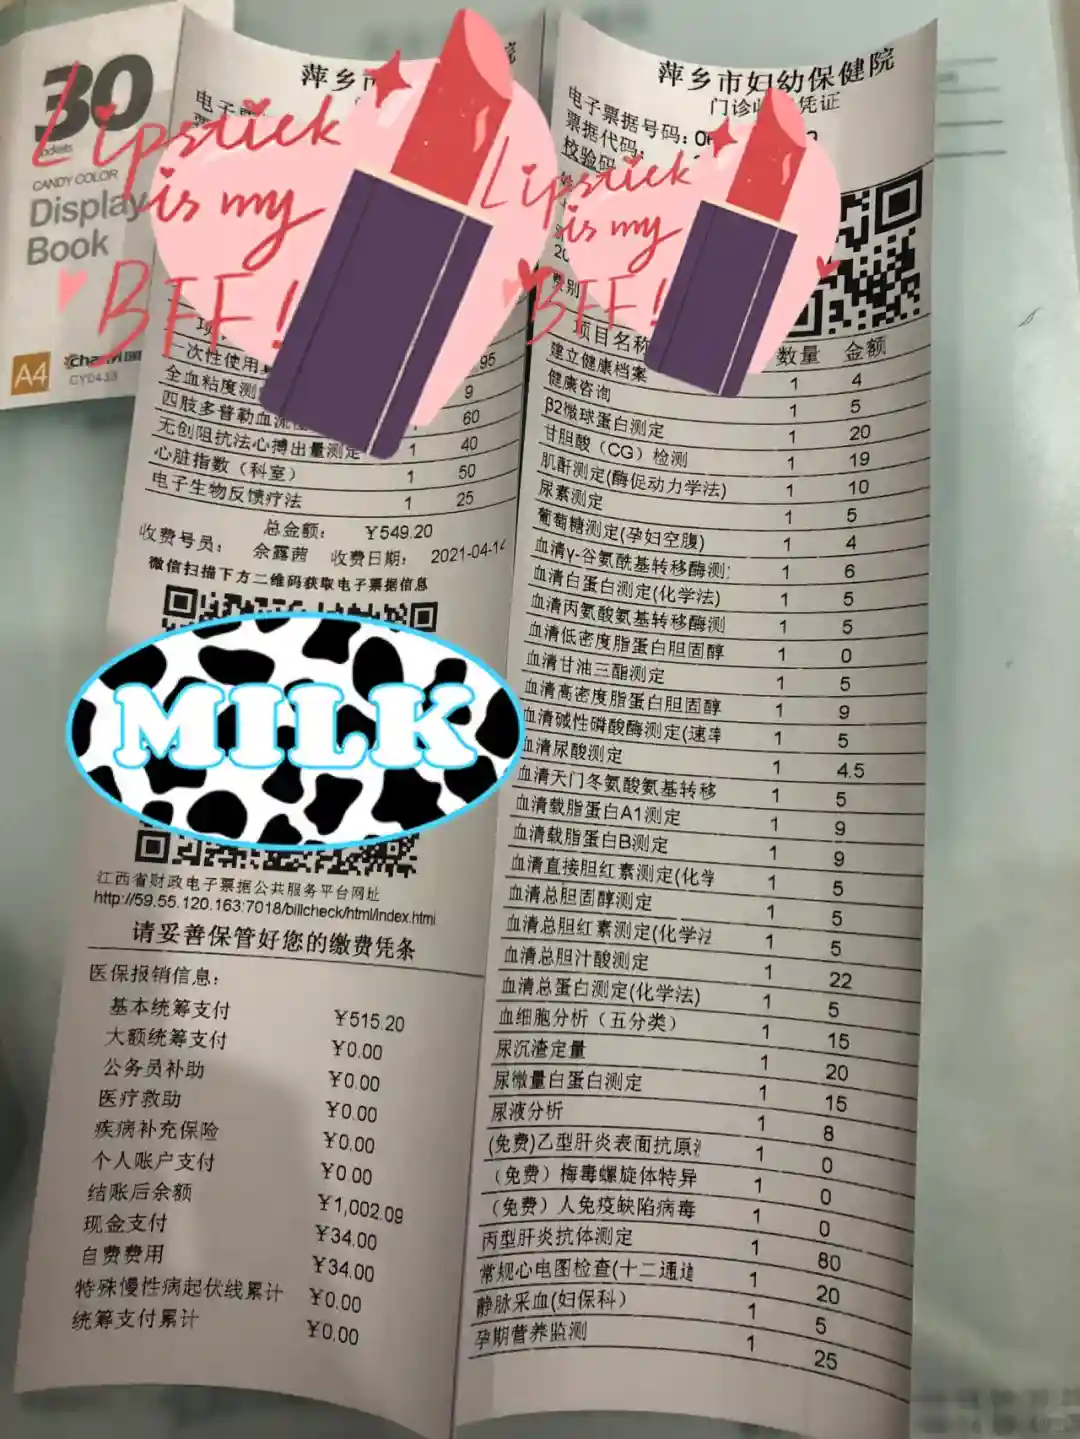 30
CANDY COLOR
Display
Book
A4
CY0433
Lipstick
is my
BFF!
萍乡市
电子票
一次性使用
95
全血粘度测
9
四肢多普勒血流
60
无创阻抗法心搏出量测定 1 40
心脏指数（科室） 1 50
电子生物反馈疗法 1 25
总金额： ￥549.20
收费号员： 余露茜 收费日期： 2021-04-14
微信扫描下方二维码获取电子票据信息
MILK
江西省财政电子票据公共服务平台网址
http://59.55.120.163:7018/billcheck/html/index.html
请妥善保管好您的缴费凭条
医保报销信息：
基本统筹支付 ￥515.20
大额统筹支付 ￥0.00
公务员补助 ￥0.00
医疗救助 ￥0.00
疾病补充保险 ￥0.00
个人账户支付 ￥0.00
结账后余额 ￥1,002.09
现金支付 ￥34.00
自费费用 ￥34.00
特殊慢性病起伏线累计 ￥0.00
统筹支付累计 ￥0.00
萍乡市妇幼保健院
门诊收 凭证
电子票据号码：
票据代码：
校验码
Lipstick
is my
BFF!
项目名称 数量 金额
建立健康档案 1 4
健康咨询 1 5
β2微球蛋白测定 1 20
甘胆酸（CG）检测 1 19
肌酐测定(酶促动力学法) 1 10
尿素测定 1 5
葡萄糖测定(孕妇空腹) 1 4
血清γ-谷氨酰基转移酶测 1 6
血清白蛋白测定(化学法) 1 5
血清丙氨酸氨基转移酶测 1 5
血清低密度脂蛋白胆固醇 1 0
血清甘油三酯测定 1 5
血清高密度脂蛋白胆固醇 1 9
血清碱性磷酸酶测定(速率 1 5
血清尿酸测定 1 4.5
血清天门冬氨酸氨基转移 1 5
血清载脂蛋白A1测定 1 9
血清载脂蛋白B测定 1 9
血清直接胆红素测定(化学 1 5
血清总胆固醇测定 1 5
血清总胆红素测定(化学法 1 5
血清总胆汁酸测定 1 22
血清总蛋白测定(化学法) 1 5
血细胞分析（五分类） 1 15
尿沉渣定量 1 20
尿微量白蛋白测定 1 15
尿液分析 1 8
(免费)乙型肝炎表面抗原 1 0
（免费）梅毒螺旋体特异 1 0
（免费）人免疫缺陷病毒 1 0
丙型肝炎抗体测定 1 80
常规心电图检查(十二通道 1 20
静脉采血(妇保科) 1 5
孕期营养监测 1 25